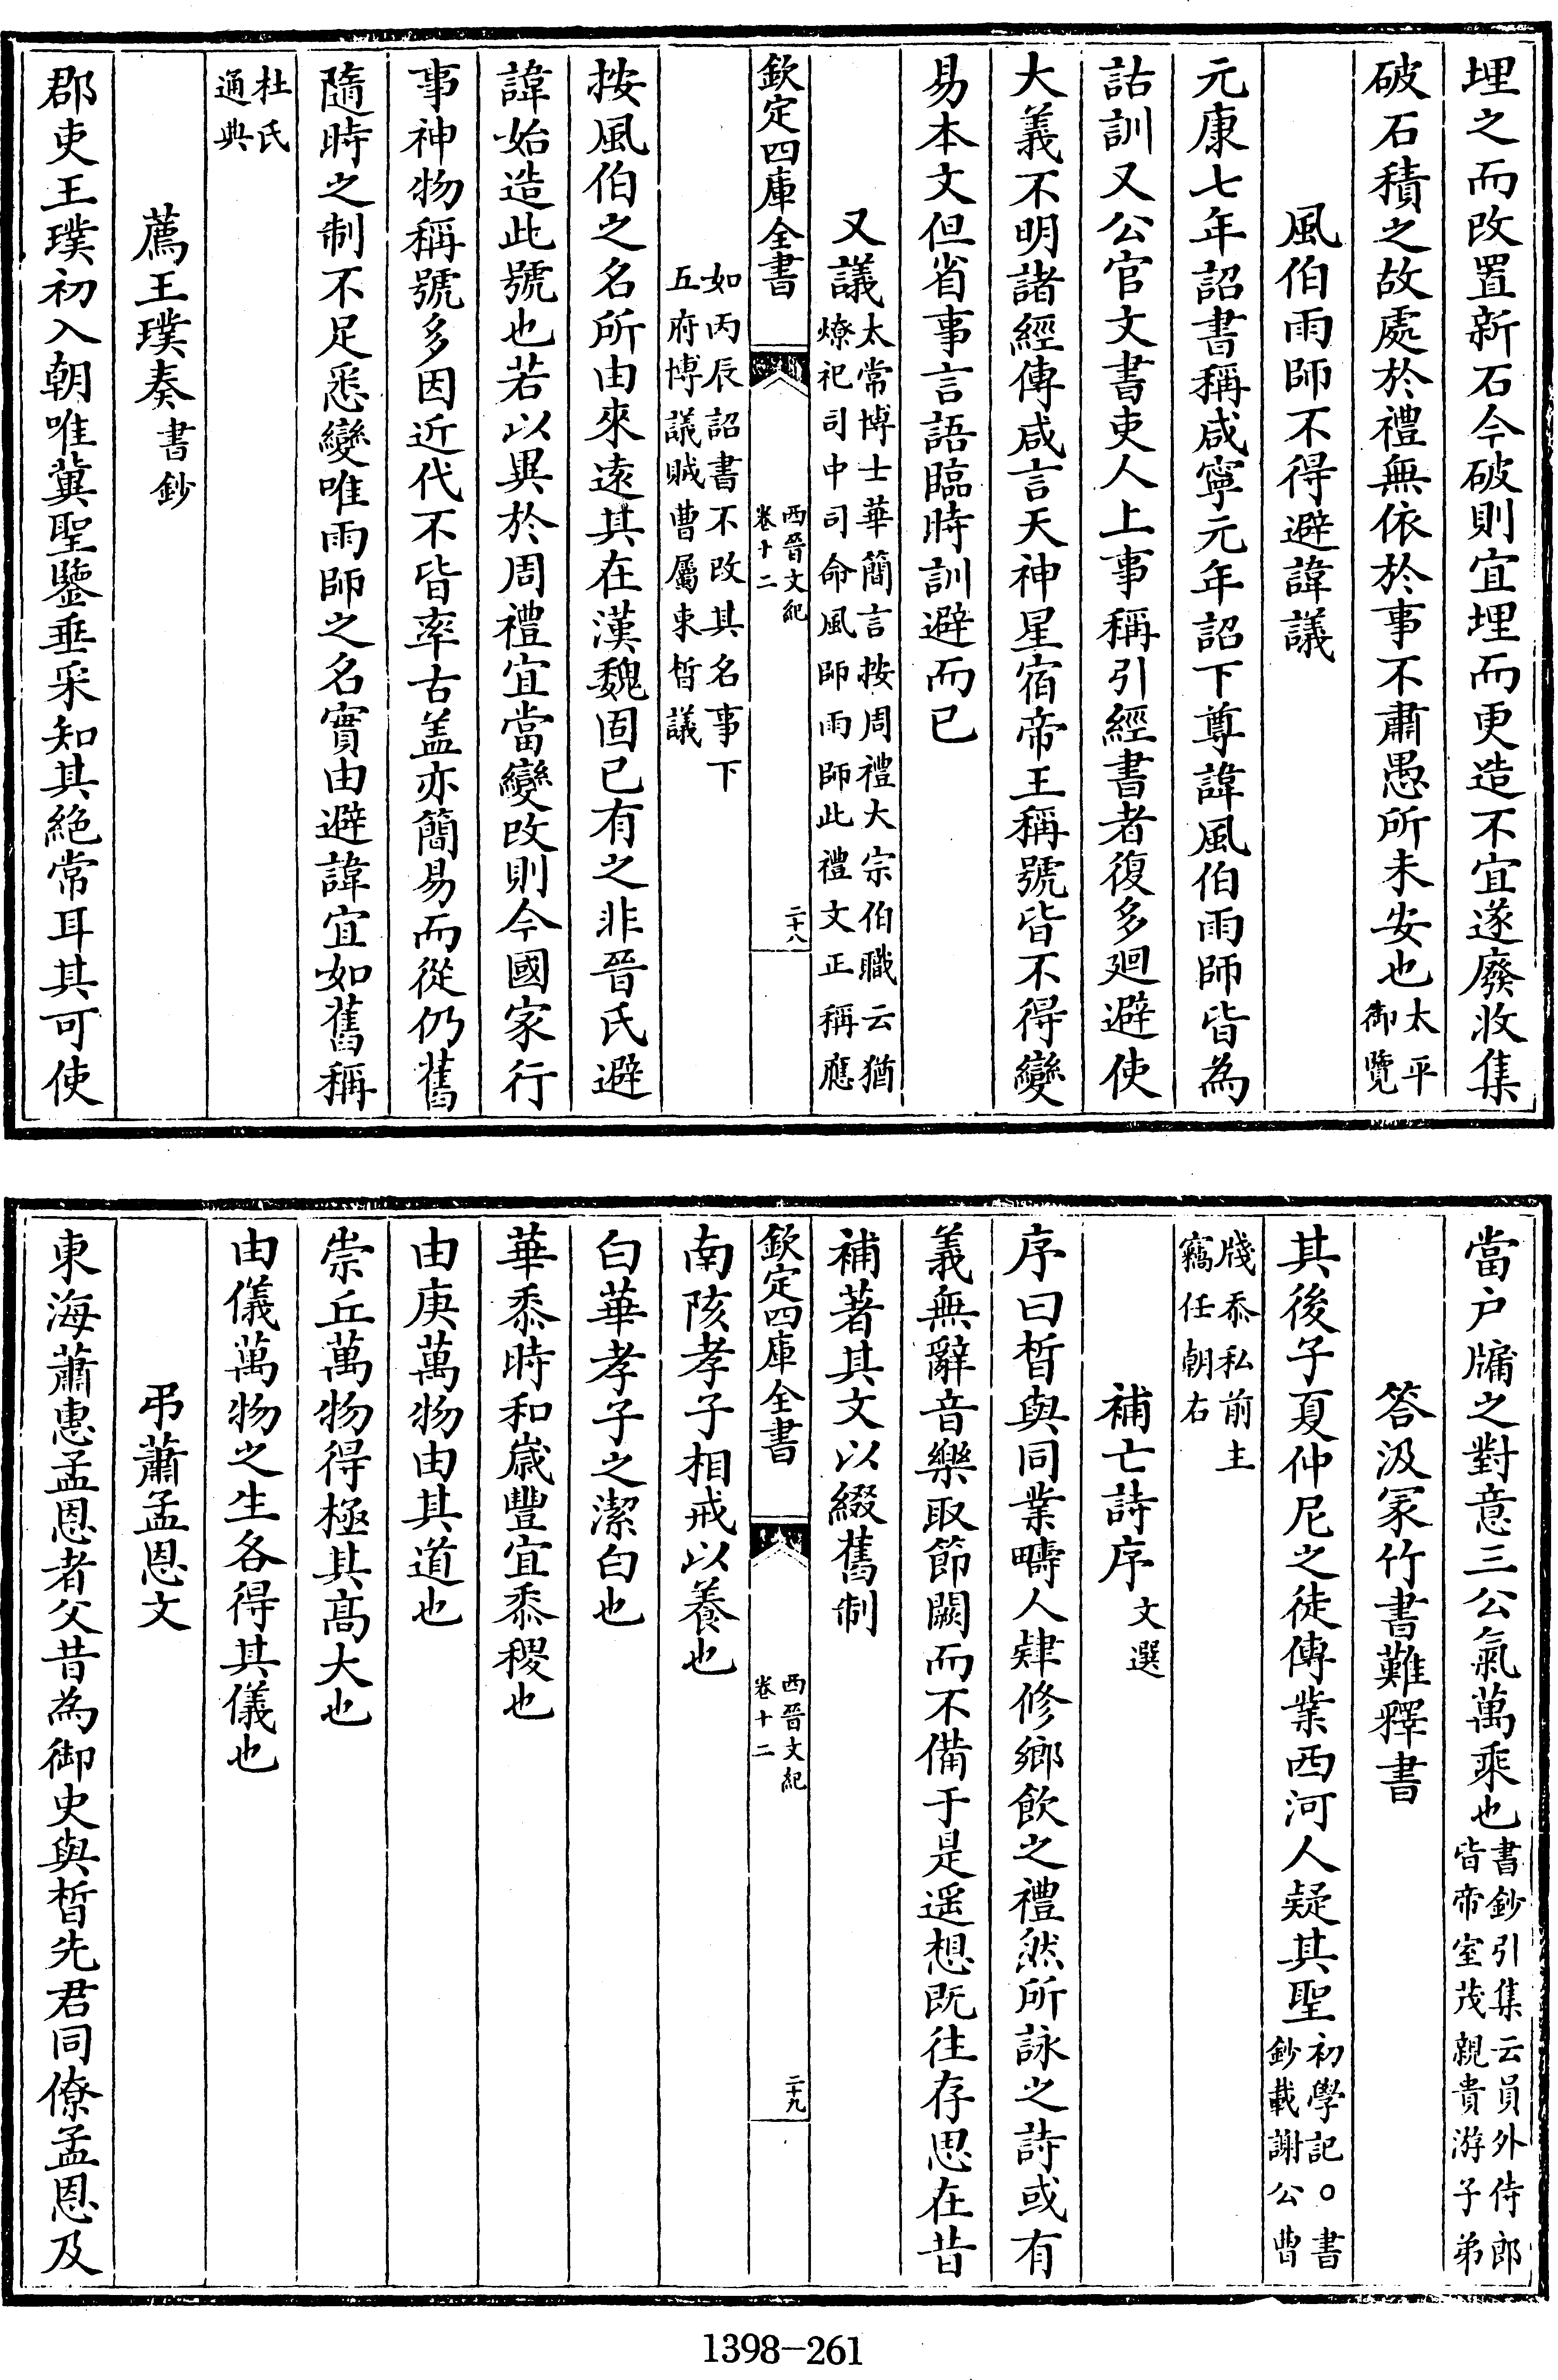 埋之而改置新石今破則宜埋而更造不宜遂廢收集
破石積之故處於禮無依於事不肅愚所未安也太平御覽
風伯雨師不得避諱議
元康七年詔書稱咸寧元年詔下尊諱風伯雨師皆為
詁訓又公官文書吏人上事稱引經書者復多廻避使
大義不明諸經傳咸言天神星宿帝王稱號皆不得變
易本文但省事言語臨時訓避而已
又議太常博士華簡言按周禮大宗伯職云猶燎祀司中司命風師雨師此禮文正稱應
欽定四庫全書
西晉文紀
卷十二
二十八
如丙辰詔書不改其名事下五府博議賊曹屬束晳議
按風伯之名所由來遠其在漢魏固已有之非晉氏避
諱始造此號也若以異於周禮宜當變改則今國家行
事神物稱號多因近代不皆率古盖亦簡易而從仍舊
隨時之制不足悉變唯雨師之名實由避諱宜如舊稱
杜氏通典
薦王璞奏書鈔
郡吏王璞初入朝唯冀聖鑒垂采知其絶常耳其可使
當户牖之對意三公氣萬乘也書鈔引集云員外侍郎皆帝室茂親貴游子弟
答汲冢竹書難釋書
其後子夏仲尼之徒傳業西河人疑其聖初學記○書鈔載謝公曹
牋忝私前主竊任朝右
補亡詩序文選
序曰晳與同業疇人肄修鄉飲之禮然所詠之詩或有
義無辭音樂取節闕而不備于是遥想既往存思在昔
補著其文以綴舊制
欽定四庫全書
西晉文紀
卷十二
二十九
南陔孝子相戒以養也
白華孝子之潔白也
華黍時和嵗豐宜黍稷也
由庚萬物由其道也
崇丘萬物得極其髙大也
由儀萬物之生各得其儀也
弔蕭孟恩文
東海蕭惠孟恩者父昔為御史與晳先君同僚孟恩及
1398-261